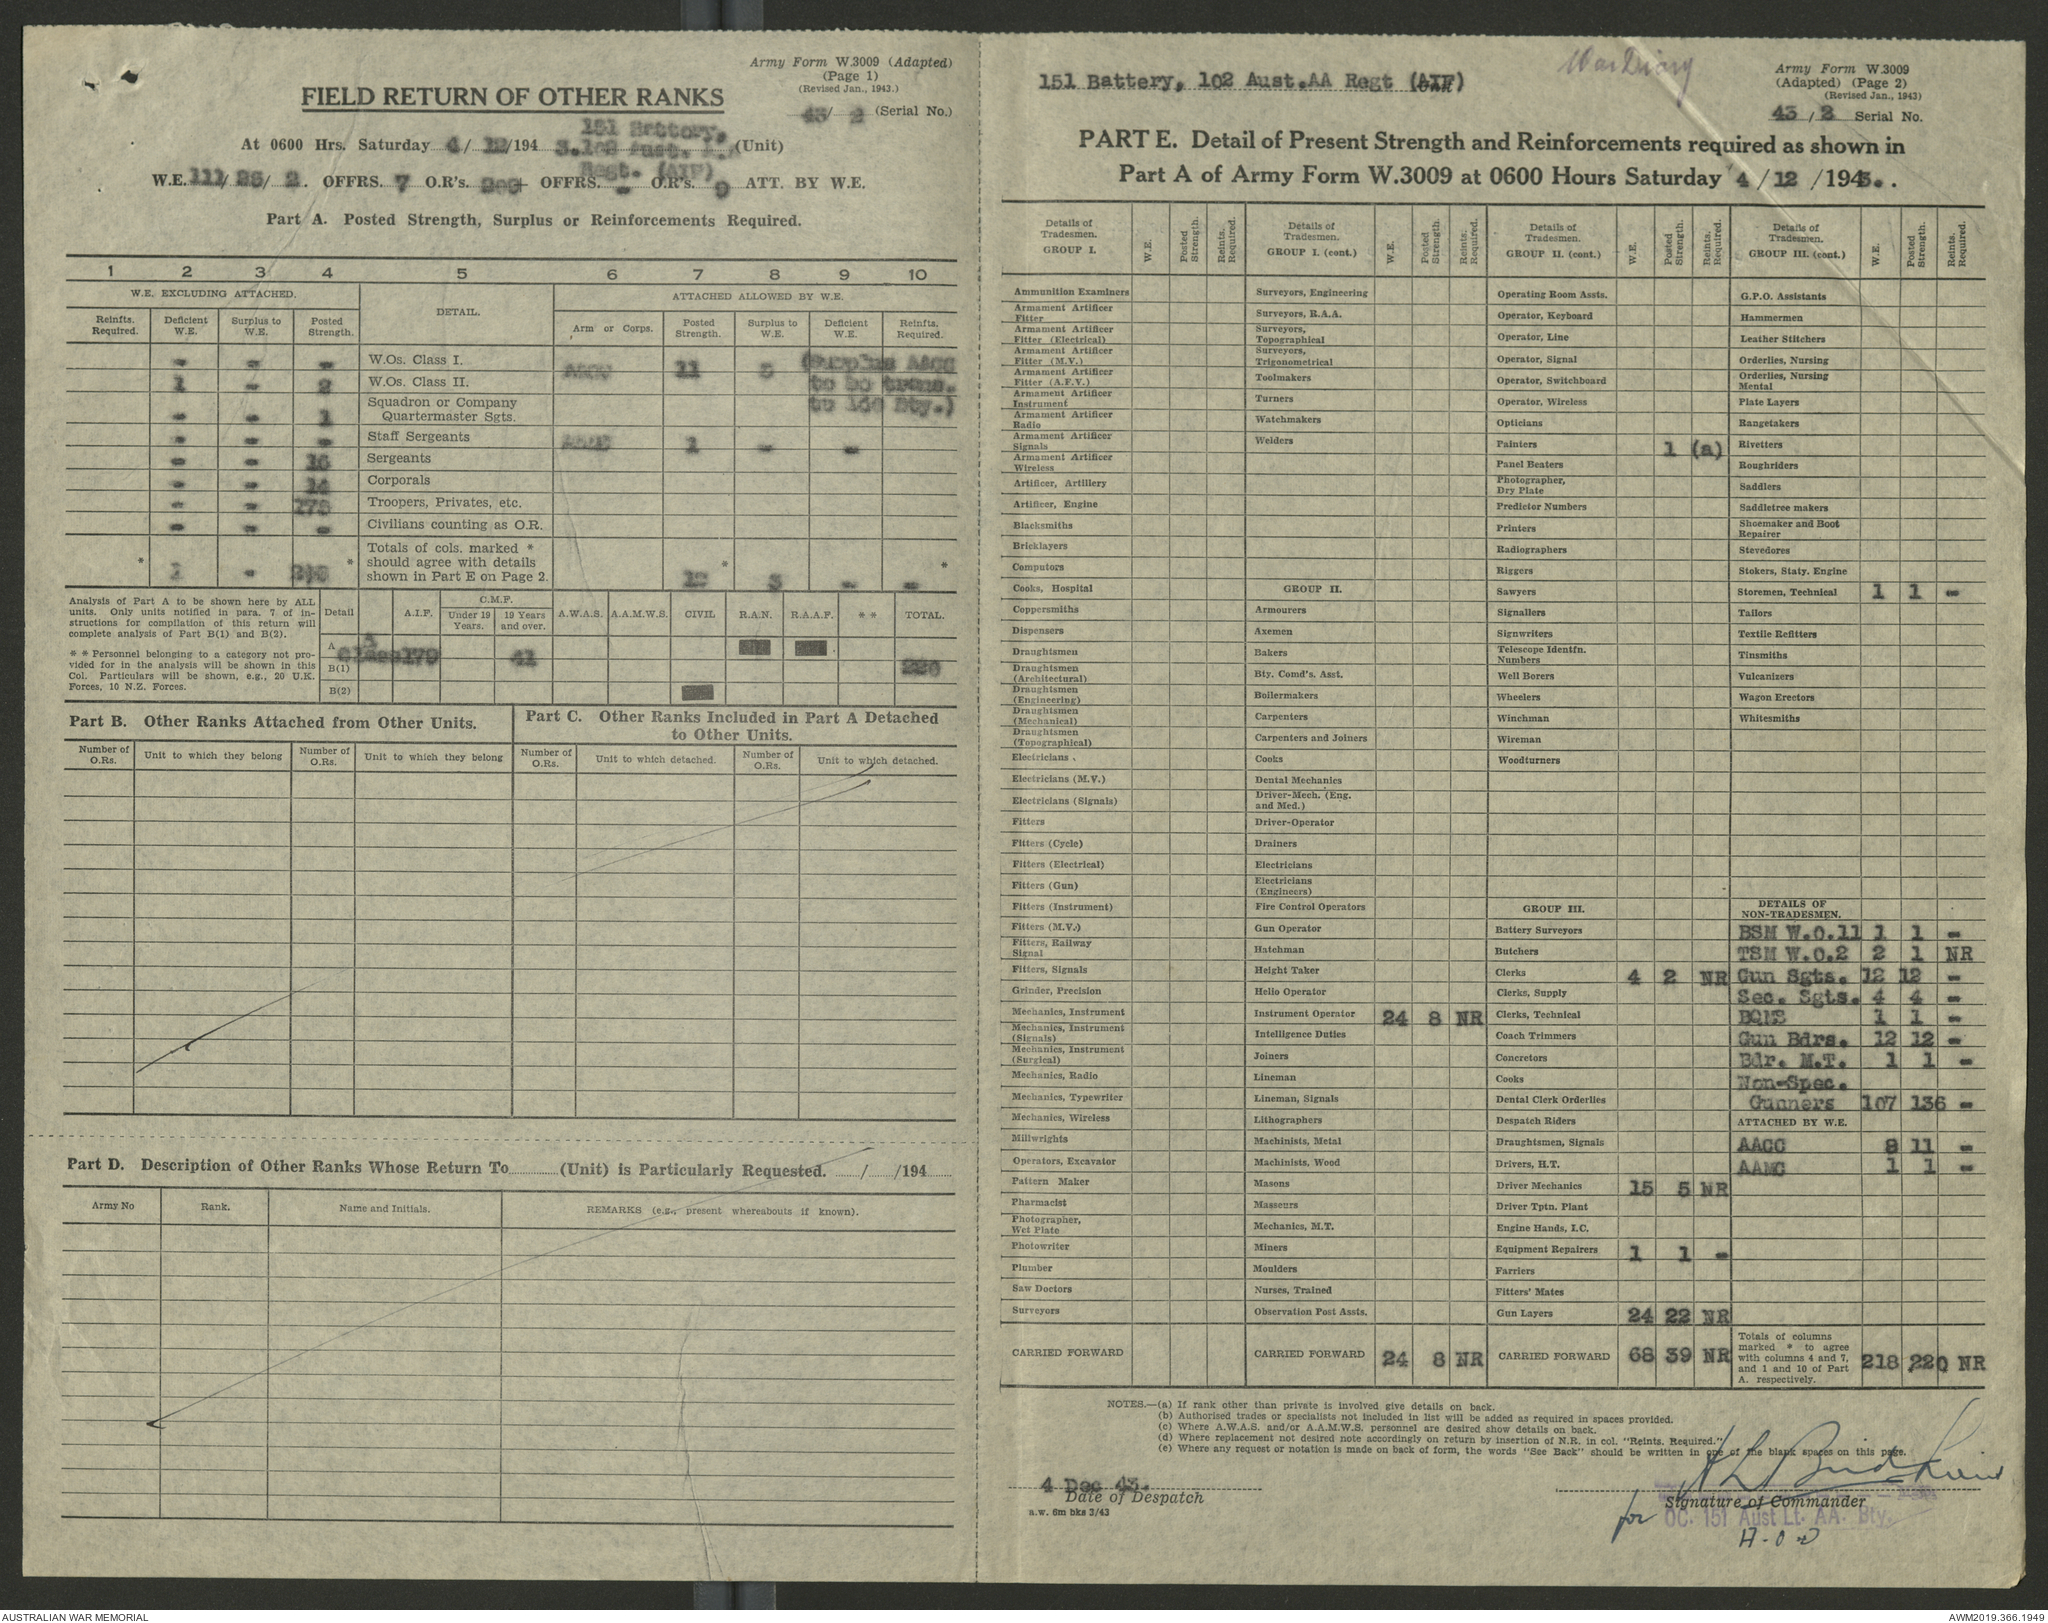 Army Form W.3009 (Adapted)
(Page 1)
(Revised Jan., 1943.)
FIELD RETURN OF OTHER RANKS
43/ 2 (Serial No.)
At 0600 Hrs. Saturday 4/ 12/194 3. 151 Battery, 102 Aust. (Unit)
Regt. (AIF)
W.E. 111/ 26/ 2. OFFRS. 7 O.R's. OFFRS. - O.R's. 9 ATT. BY W.E.
Part A. Posted Strength, Surplus or Reinforcements Required.
1 2 3 4 5 6 7 8 9 10
W.E. EXCLUDING ATTACHED. DETAIL. ATTACHED ALLOWED BY W.E.
Reinfts. Required. Deficient W.E. Surplus to W.E. Posted Strength. Arm or Corps. Posted Strength. Surplus to W.E. Deficient W.E. Reinfts. Required.
- - - W.Os. Class I. AACC 11 3 (Surplus AACC
1 - 2 W.Os. Class II. to be trans.
- - 1 Squadron or Company Quartermaster Sgts. Bty.)
- - - Staff Sergeants 1 - -
- - 16 Sergeants
- - 14 Corporals
- - 175 Troopers, Privates, etc.
- - - Civilians counting as O.R.
* 1 - 208 * Totals of cols. marked * should agree with details shown in Part E on Page 2. 12 * 3 - - *
Analysis of Part A to be shown here by ALL units. Only units notified in para. 7 of instructions for compilation of this return will complete analysis of Part B(1) and B(2).
* * Personnel belonging to a category not provided for in the analysis will be shown in this Col. Particulars will be shown, e.g., 20 U.K. Forces, 10 N.Z. Forces.
Detail A.I.F. C.M.F. Under 19 Years. 19 Years and over. A.W.A.S. A.A.M.W.S. CIVIL R.A.N. R.A.A.F. * * TOTAL.
A 179 41 220
B(1)
B(2)
Part B. Other Ranks Attached from Other Units.
Number of O.Rs. Unit to which they belong Number of O.Rs. Unit to which they belong
Part C. Other Ranks Included in Part A Detached to Other Units.
Number of O.Rs. Unit to which detached. Number of O.Rs. Unit to which detached.
Part D. Description of Other Ranks Whose Return To (Unit) is Particularly Requested. / /194
Army No Rank. Name and Initials. REMARKS (e.g., present whereabouts if known).
151 Battery, 102 Aust.AA Regt (AIF)
War Diary
Army Form W.3009
(Adapted) (Page 2)
(Revised Jan., 1943)
43 / 2 Serial No.
PART E. Detail of Present Strength and Reinforcements required as shown in
Part A of Army Form W.3009 at 0600 Hours Saturday 4 / 12 / 1943. .
Details of Tradesmen. GROUP I. W.E. Posted Strength. Reints. Required.
Ammunition Examiners
Armament Artificer Fitter
Armament Artificer Fitter (Electrical)
Armament Artificer Fitter (M.V.)
Armament Artificer Fitter (A.F.V.)
Armament Artificer Instrument
Armament Artificer Radio
Armament Artificer Signals
Armament Artificer Wireless
Artificer, Artillery
Artificer, Engine
Blacksmiths
Bricklayers
Computors
Cooks, Hospital
Coppersmiths
Dispensers
Draughtsmen
Draughtsmen (Architectural)
Draughtsmen (Engineering)
Draughtsmen (Mechanical)
Draughtsmen (Topographical)
Electricians
Electricians (M.V.)
Electricians (Signals)
Fitters
Fitters (Cycle)
Fitters (Electrical)
Fitters (Gun)
Fitters (Instrument)
Fitters (M.V.)
Fitters, Railway Signal
Fitters, Signals
Grinder, Precision
Mechanics, Instrument
Mechanics, Instrument (Signals)
Mechanics, Instrument (Surgical)
Mechanics, Radio
Mechanics, Typewriter
Mechanics, Wireless
Millwrights
Operators, Excavator
Pattern Maker
Pharmacist
Photographer, Wet Plate
Photowriter
Plumber
Saw Doctors
Surveyors
CARRIED FORWARD
Details of Tradesmen. GROUP I. (cont.) W.E. Posted Strength. Reints. Required.
Surveyors, Engineering
Surveyors, R.A.A.
Surveyors, Topographical
Surveyors, Trigonometrical
Toolmakers
Turners
Watchmakers
Welders
GROUP II.
Armourers
Axemen
Bakers
Bty. Comd's. Asst.
Boilermakers
Carpenters
Carpenters and Joiners
Cooks
Dental Mechanics
Driver-Mech. (Eng. and Med.)
Driver-Operator
Drainers
Electricians
Electricians (Engineers)
Fire Control Operators
Gun Operator
Hatchman
Height Taker
Helio Operator
Instrument Operator 24 8 NR
Intelligence Duties
Joiners
Lineman
Lineman, Signals
Lithographers
Machinists, Metal
Machinists, Wood
Masons
Masseurs
Mechanics, M.T.
Miners
Moulders
Nurses, Trained
Observation Post Assts.
CARRIED FORWARD 24 8 NR
Details of Tradesmen. GROUP II. (cont.) W.E. Posted Strength. Reints. Required.
Operating Room Assts.
Operator, Keyboard
Operator, Line
Operator, Signal
Operator, Switchboard
Operator, Wireless
Opticians
Painters 1 (a)
Panel Beaters
Photographer, Dry Plate
Predictor Numbers
Printers
Radiographers
Riggers
Sawyers
Signallers
Signwriters
Telescope Identfn. Numbers
Well Borers
Wheelers
Winchman
Wireman
Woodturners
GROUP III.
Battery Surveyors
Butchers
Clerks 4 2 NR
Clerks, Supply
Clerks, Technical
Coach Trimmers
Concretors
Cooks
Dental Clerk Orderlies
Despatch Riders
Draughtsmen, Signals
Drivers, H.T.
Driver Mechanics 15 5 NR
Driver Tptn. Plant
Engine Hands, I.C.
Equipment Repairers 1 1 -
Farriers
Fitters' Mates
Gun Layers 24 22 NR
CARRIED FORWARD 68 39 NR
Details of Tradesmen. GROUP III. (cont.) W.E. Posted Strength. Reints. Required.
G.P.O. Assistants
Hammermen
Leather Stitchers
Orderlies, Nursing
Orderlies, Nursing Mental
Plate Layers
Rangetakers
Rivetters
Roughriders
Saddlers
Saddletree makers
Shoemaker and Boot Repairer
Stevedores
Stokers, Staty. Engine
Storemen, Technical 1 1 -
Tailors
Textile Refitters
Tinsmiths
Vulcanizers
Wagon Erectors
Whitesmiths
DETAILS OF NON-TRADESMEN.
BSM W.O.11 1 1 -
TSM W.O.2 2 1 NR
Gun Sgts. 12 12 -
Sec. Sgts. 4 4 -
BQMS 1 1 -
Gun Bdrs. 12 12 -
Bdr. M.T. 1 1 -
Non-Spec.
Gunners 107 136 -
ATTACHED BY W.E.
AACC 8 11 -
AAMC 1 1 -
Totals of columns marked * to agree with columns 4 and 7, and 1 and 10 of Part A. respectively. 218 220 NR
NOTES.—(a) If rank other than private is involved give details on back.
(b) Authorised trades or specialists not included in list will be added as required in spaces provided.
(c) Where A.W.A.S. and/or A.A.M.W.S. personnel are desired show details on back.
(d) Where replacement not desired note accordingly on return by insertion of N.R. in col. "Reints. Required."
(e) Where any request or notation is made on back of form, the words "See Back" should be written in one of the blank spaces on this page.
4 Dec 43.
Date of Despatch
a.w. 6m bks 3/43
Signature of Commander
for OC. 151 Aust Lt. AA. Bty.
AUSTRALIAN WAR MEMORIAL
AWM2019.366.1949